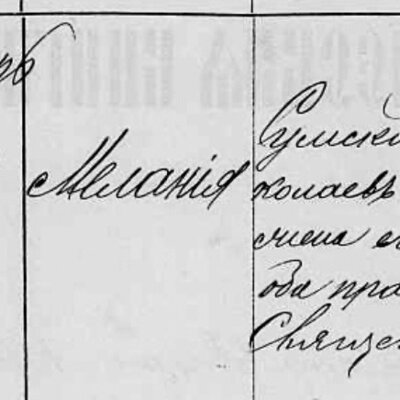 рь
Меланія
Сумской
колаевъ
жена е
оба пра
Священ